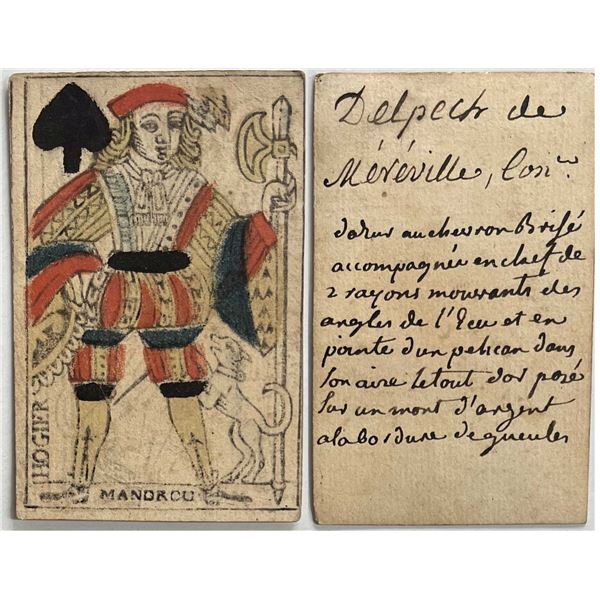 HOGIER
MANDROU
Delpech de
Méréville, Con.er
dazur au chevron Brisé
accompagnée en chef de
2 rayons mouvants des
angles de l'Ecu et en
pointe d'un pelican dans
son aire le tout d'or posé
sur un mont d'argent
a la bordure de gueules